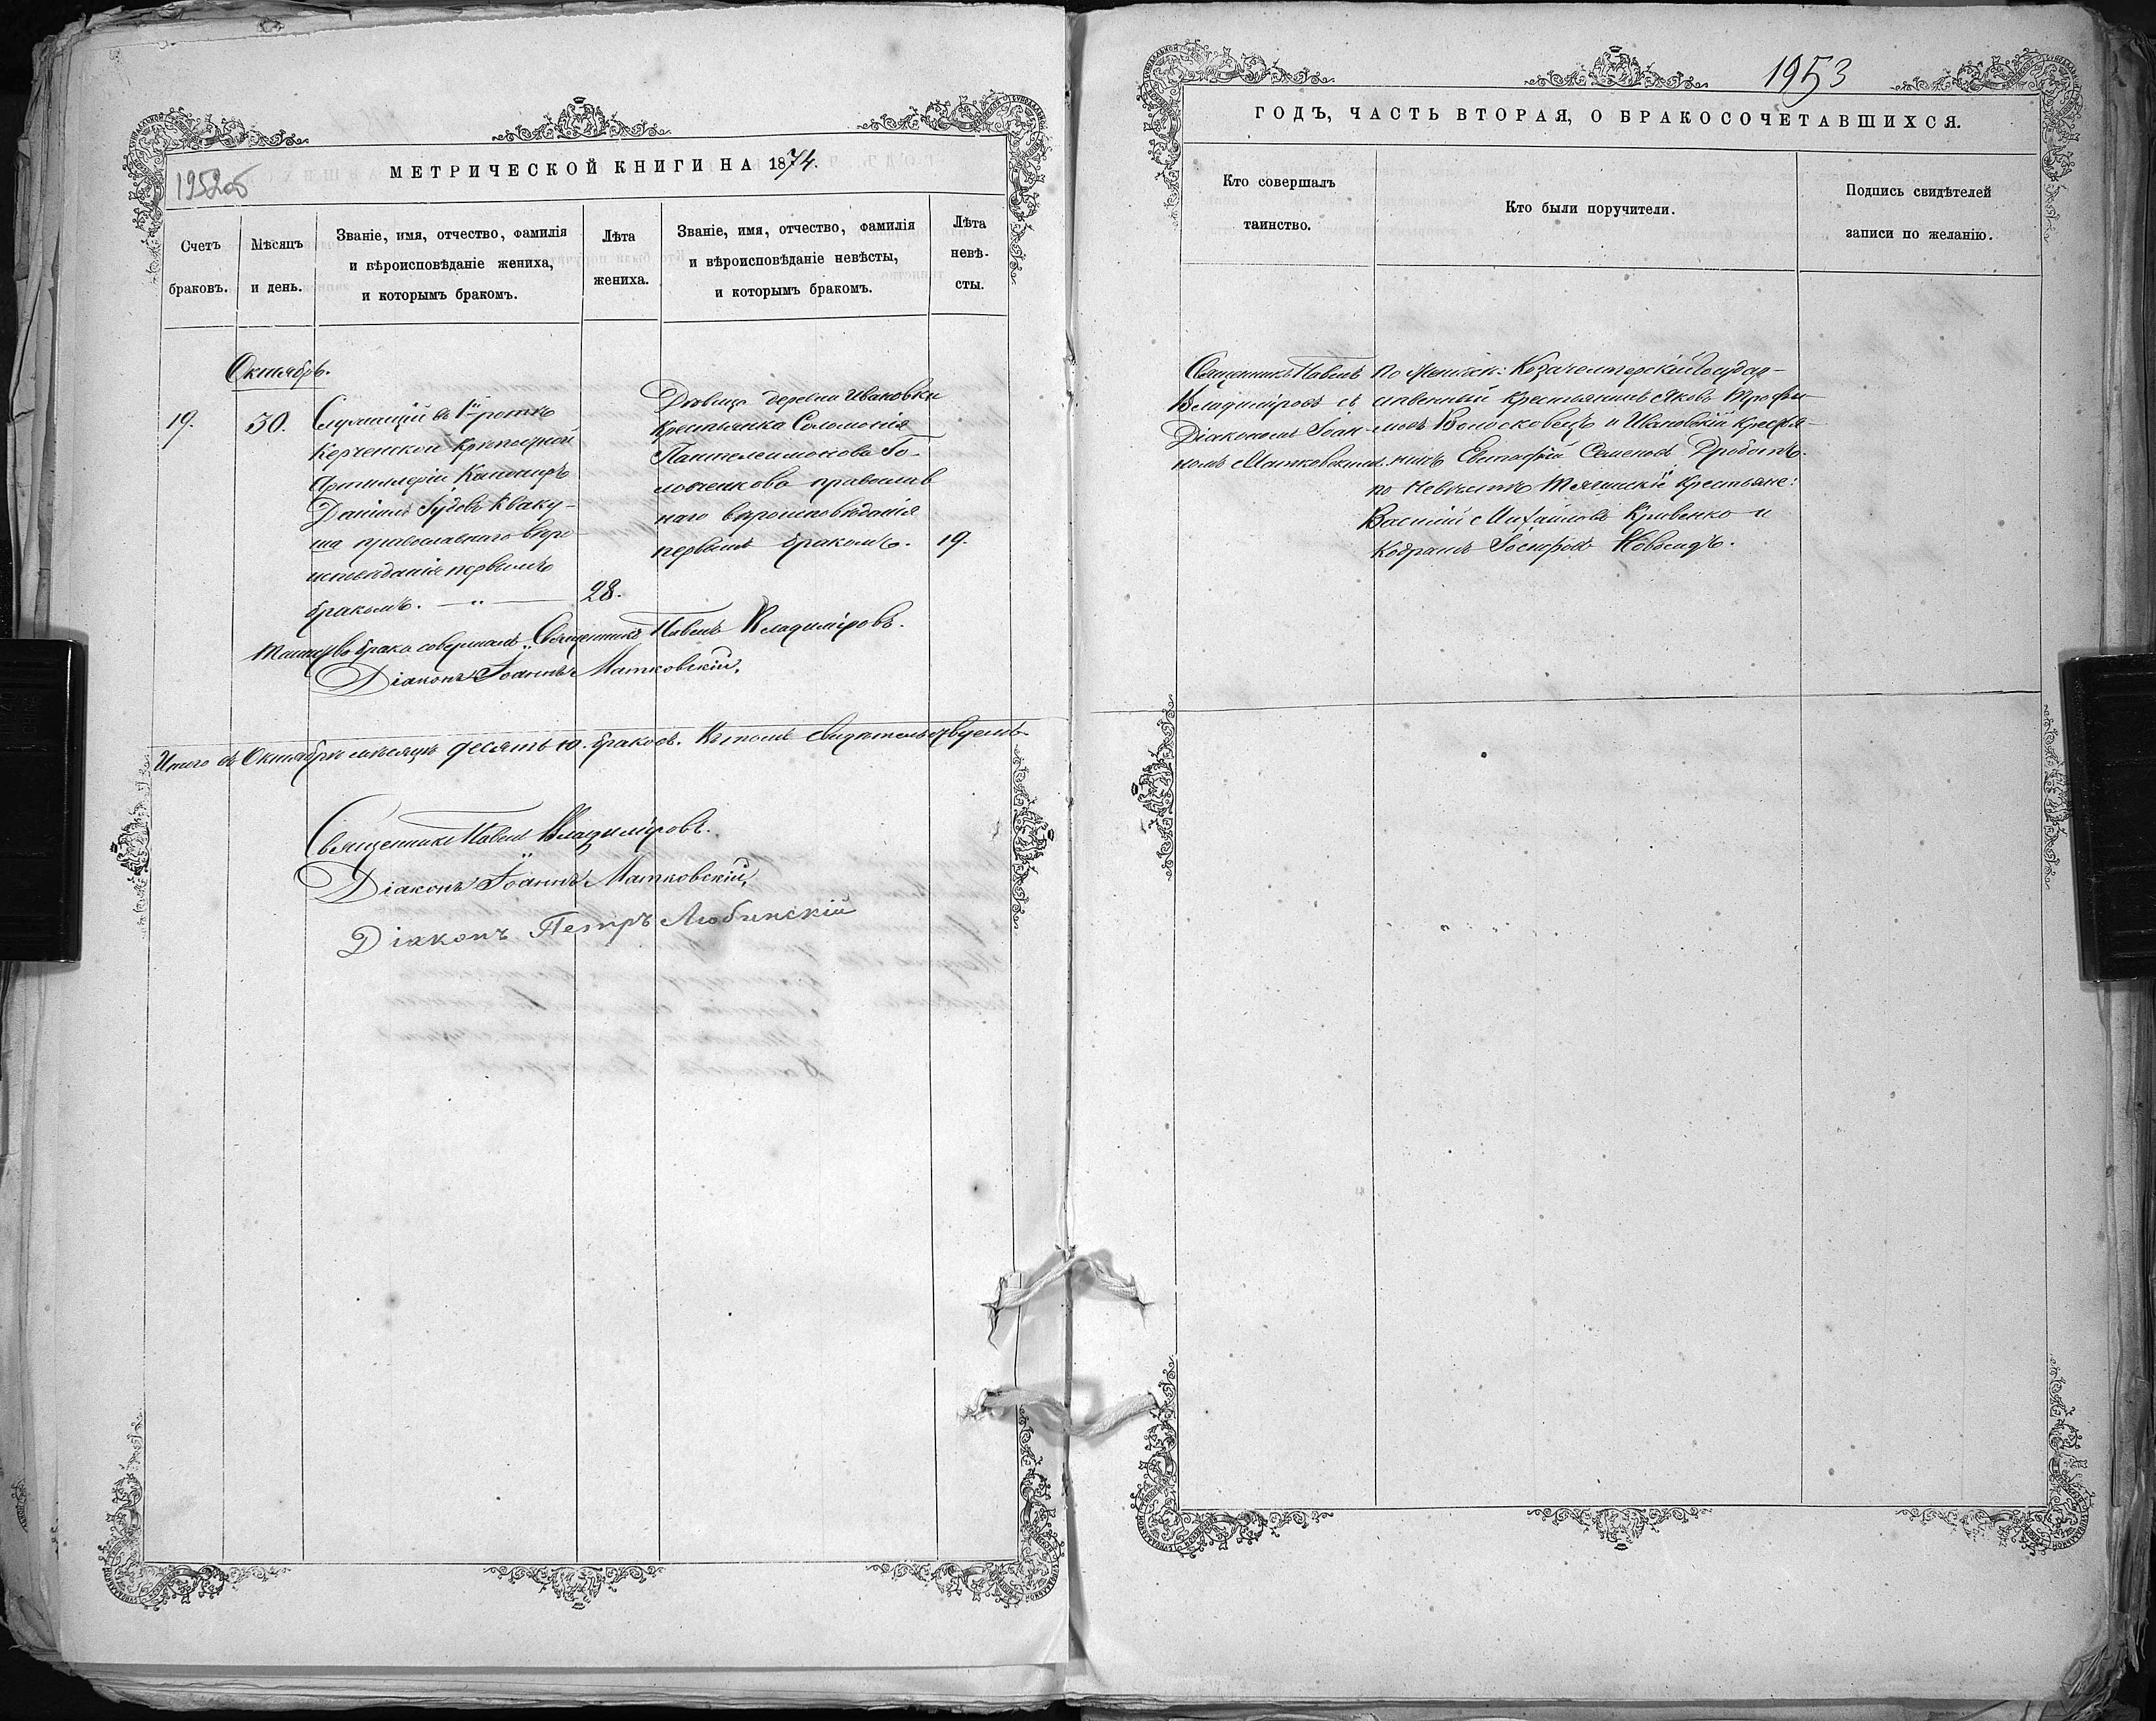 МЕТРИЧЕСКОЙ КНИГИ НА 1874.
1952об
Счетъ браковъ.
Мѣсяцъ и день.
Званіе, имя, отчество, фамилія
и вѣроисповѣданіе жениха,
и которымъ бракомъ.
Лѣта жениха.
Званіе, имя, отчество, фамилія
и вѣроисповѣданіе невѣсты,
и которымъ бракомъ.
Лѣта невѣ-
сты.
Октябрь.
19.
30.
Служащій въ 1й ротѣ
Керченской крѣпостной
Артиллеріи Канониръ
Даніилъ Іудовъ Кваку-
ша православнаго вѣро
исповѣданія первымъ
бракомъ. — " —
28.
Дѣвица деревни Ивановки
крестьянка Соломонія
Пантелеимонова Го-
ловченкова православ
наго вѣроисповѣданія
первымъ бракомъ.
19.
Таинство брака совершалъ: Священникъ Павелъ Владиміровъ.
Діаконъ Іоаннъ Матковскій.
Итого въ Октябрѣ мѣсяцѣ десять 10. браковъ. Въ томъ свидѣтельствуемъ
Священникъ Павелъ Владиміровъ.
Діаконъ Іоаннъ Матковскій,
Діаконъ Петръ Любинскій
1953
ГОДЪ, ЧАСТЬ ВТОРАЯ, О БРАКОСОЧЕТАВШИХСЯ.
Кто совершалъ
таинство.
Кто были поручители.
Подпись свидѣтелей
записи по желанію.
Священникъ Павелъ
Владиміровъ съ
Діакономъ Іоан-
номъ Матковскимъ
По женихѣ: Козачелагерскій Государ-
ственный крестьянинъ Яковъ Трофи-
мовъ Волосковецъ и Ивановскій крестья-
нинъ Семеновъ Дроботъ.
по Невѣстѣ Тягинскіе крестьяне:
Василій Михайловъ Кривенко и
Кодратъ Іосифовъ